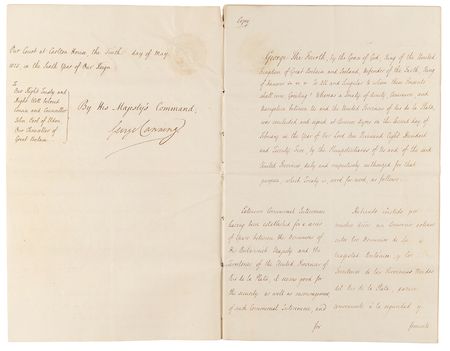 Our Court at Carlton House, the Tenth day of May,
1825, in the Sixth Year of Our Reign.
To
Our Right Trusty and
Right Well Beloved
Cousin and Councellor
John Earl of Eldon
Our Chancellor of
Great Britain
By His Majesty's Command,
George Canning
Copy
George The Fourth, by the Grace of God, King of the United
Kingdom of Great Britain and Ireland, Defender of the Faith, King
of Hanover To All and Singular to whom these Presents
shall come, Greeting! Whereas a Treaty of Amity, Commerce, and
Navigation between Us and the United Provinces of Rio de la Plata,
was concluded and signed at Buenos Ayres on the Second day of
February in the Year of Our Lord One Thousand Eight Hundred
and Twenty Five, by the Plenipotentiaries of Us and of the said
United Provinces, duly and respectively authorized for that
purpose, which Treaty is, word for word, as follows.
Extensive Commercial Intercourse
having been established for a series
of Years between the Dominions of
His Britannick Majesty and the
Territories of the United Provinces of
Rio de la Plata, it seems good for
the security as well as encouragement
of such Commercial Intercourse, and
for
Habiendo existido por
muchos años un Comercio extenso
entre los Dominios de Su
Magestad Británica, y los
Territorios de las Provincias Unidas
del Rio de la Plata, parece
conveniente à la seguridad y
fomento